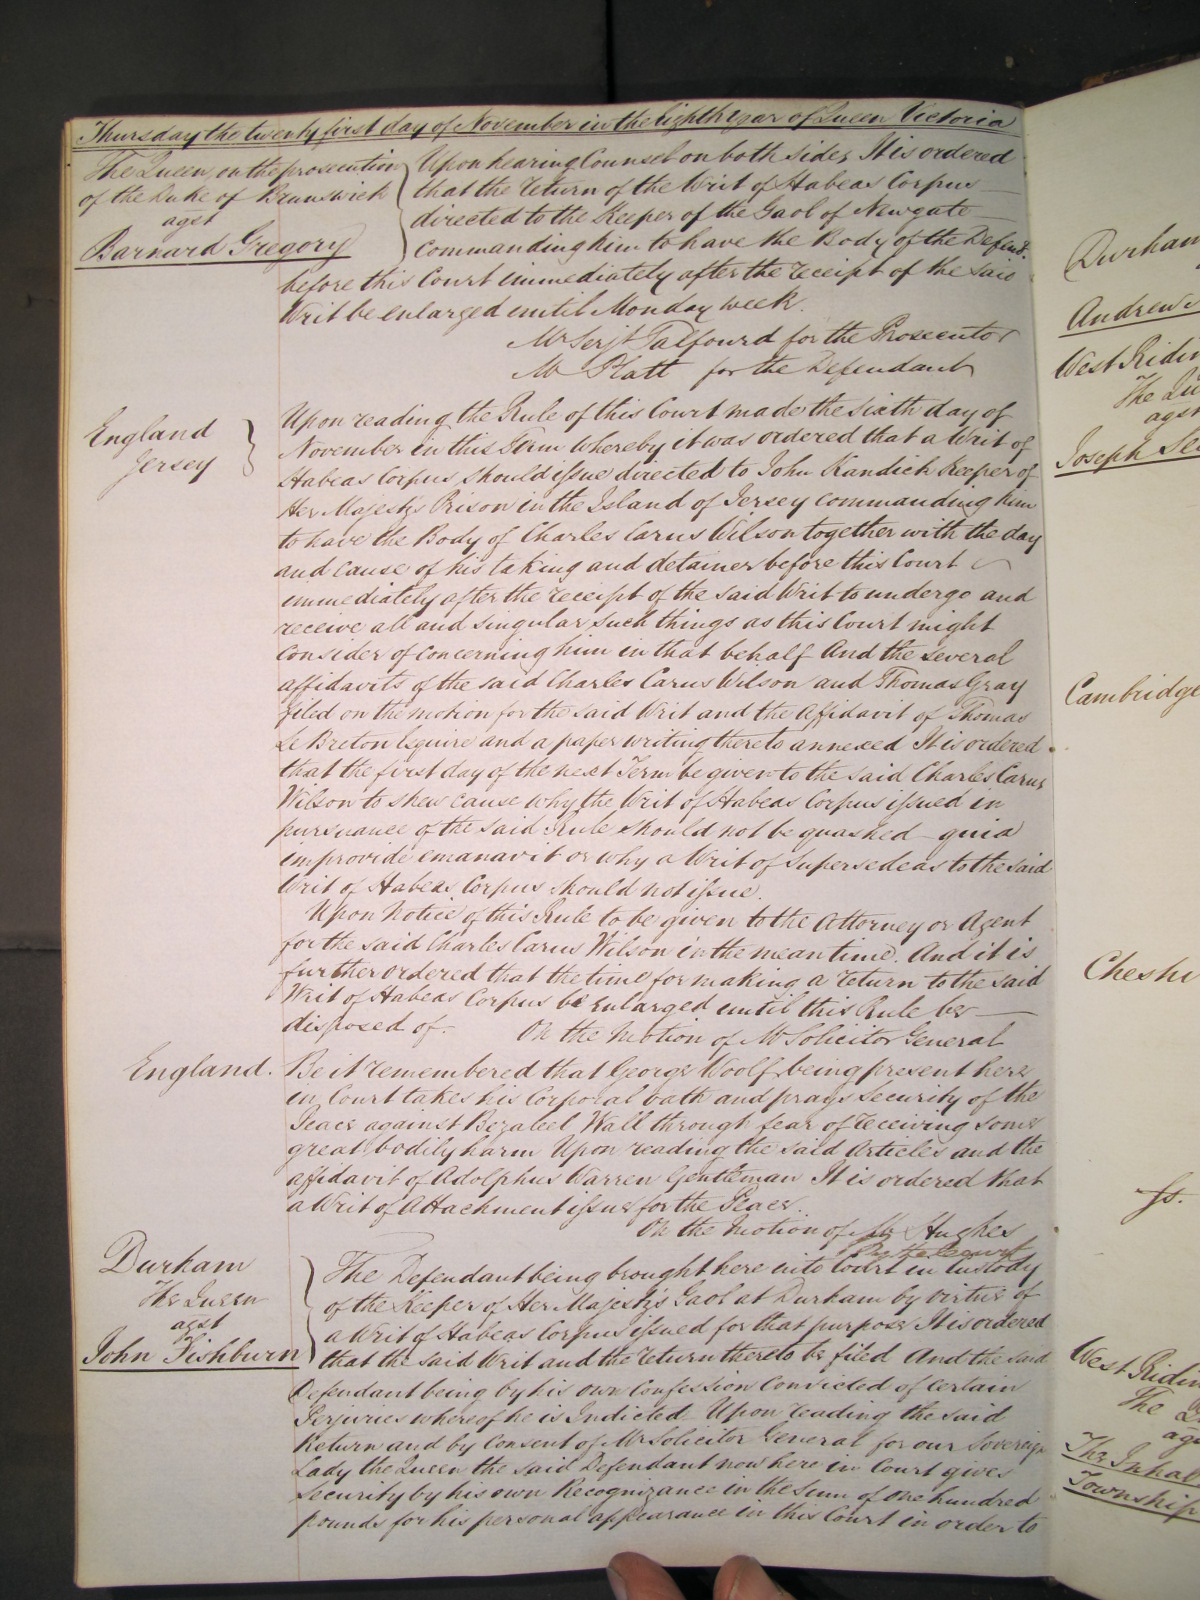 Thursday the twenty first day of November in the Eighth year of Queen Victoria
The Queen, on the prosecution
of the Duke of Brunswick
agst
Barnard Gregory
Upon hearing Counsel on both sides It is ordered
that the return of the Writ of Habeas Corpus
directed to the Keeper of the Gaol of Newgate
Commanding him to have the Body of the Defend.t
before this Court immediately after the receipt of the said
Writ be enlarged until Monday week.
Mr Serjt Talfourd for the Prosecutor
Mr Platt for the Defendant
England
Jersey
Upon reading the Rule of this Court made the sixth day of
November in this Term whereby it was ordered that a Writ of
Habeas Corpus should issue directed to John Kandich Keeper of
Her Majesty's Prison in the Island of Jersey commanding him
to have the Body of Charles Carus Wilson together with the day
and cause of his taking and detainer before this Court
immediately after the receipt of the said Writ to undergo and
receive all and singular such things as this Court might
consider of concerning him in that behalf And the several
affidavits of the said Charles Carus Wilson and Thomas Gray
filed on the motion for the said Writ and the Affidavit of Thomas
Le Breton Esquire and a paper writing thereto annexed It is ordered
that the first day of the next Term be given to the said Charles Carus
Wilson to shew cause why the Writ of Habeas Corpus issued in
pursuance of the said Rule should not be quashed quia
improvide emanavit or why a Writ of Supersedeas to the said
Writ of Habeas Corpus should not issue.
Upon Notice of this Rule to be given to the Attorney or Agent
for the said Charles Carus Wilson in the mean time. And it is
further ordered that the time for making a return to the said
Writ of Habeas Corpus be enlarged until this Rule be
disposed of. On the Motion of Mr Solicitor General
England.
Be it remembered that George Woolf being present here
in Court takes his Corporal oath and prays Security of the
Peace against Bezaleel Wall through fear of receiving some
great bodily harm Upon reading the said Articles and the
affidavit of Adolphus Warren Gentleman It is ordered that
a Writ of Attachment issue for the Peace.
On the Motion of Mr Hughes
By the Court
Durham
The Queen
agst
John Fishburn
The Defendant being brought here into Court in Custody
of the Keeper of Her Majesty's Gaol at Durham by virtue of
a Writ of Habeas Corpus issued for that purpose It is ordered
that the said Writ and the return thereto be filed And the said
Defendant being by his own Confession Convicted of certain
Perjuries whereof he is Indicted Upon reading the said
Return and by Consent of Mr Solicitor General for our Sovereign
Lady the Queen the said Defendant now here in Court gives
Security by his own Recognizance in the Sum of One hundred
pounds for his personal appearance in this Court in order to
Durham
Andrew
West Ridin
The Qu
agst
Joseph Se
Cambridge
Cheshi
ss.
West Ridin
The Q
ag
The Inhab
Township